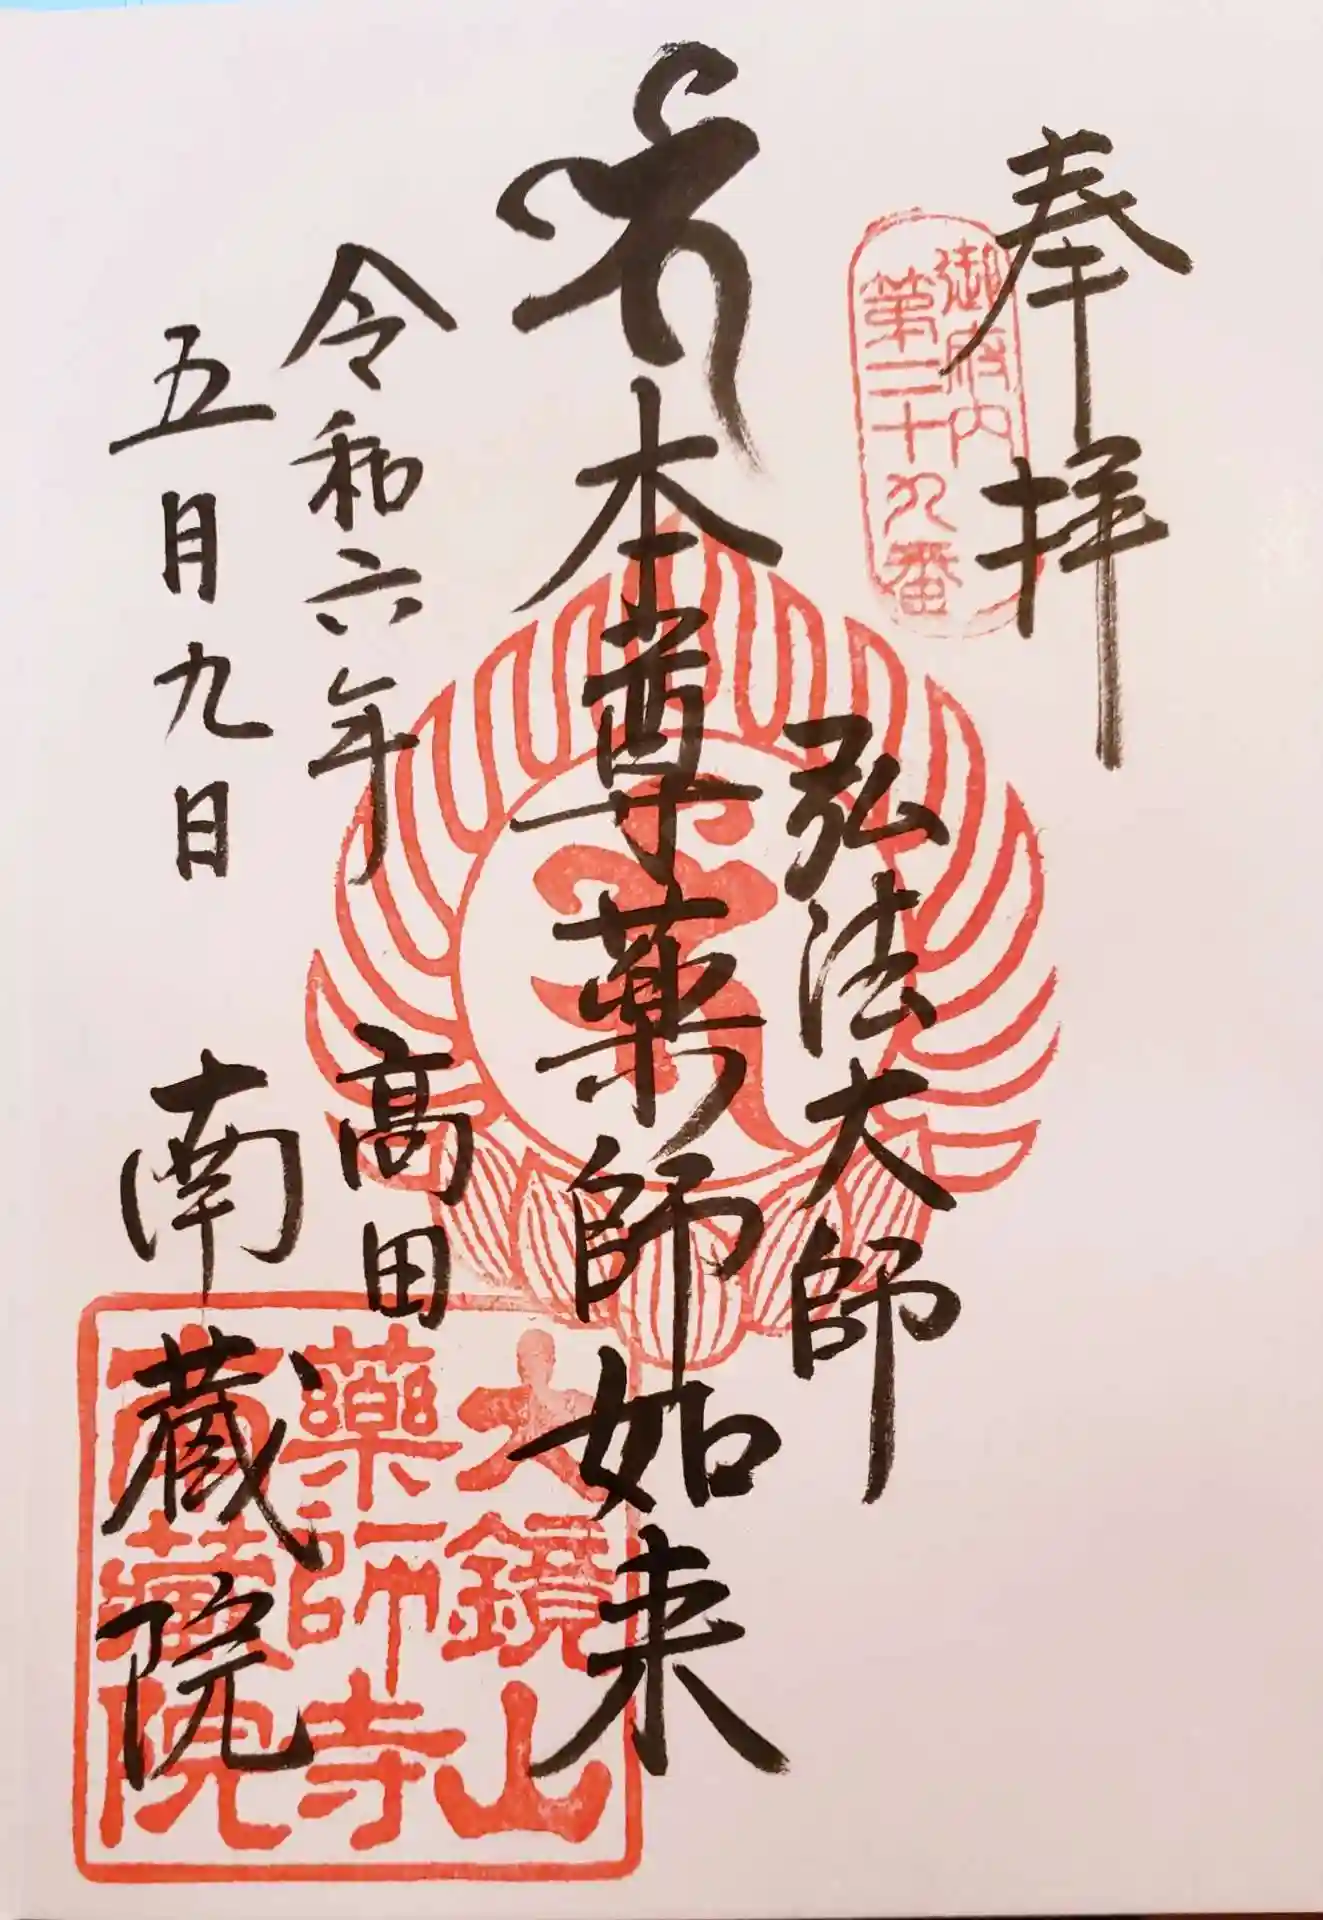 奉拝
御府内
第二十九番
弘法大師
本尊薬師如来
令和六年
五月九日
高田
南蔵院
大鏡山
薬師寺
南蔵院